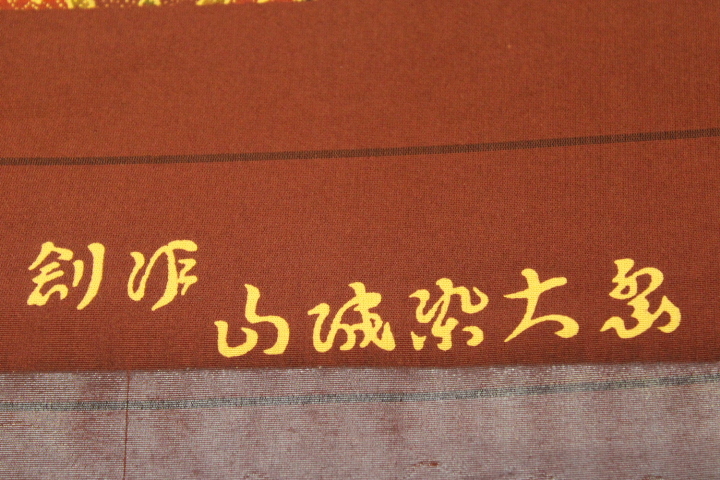 創作 山城染大島